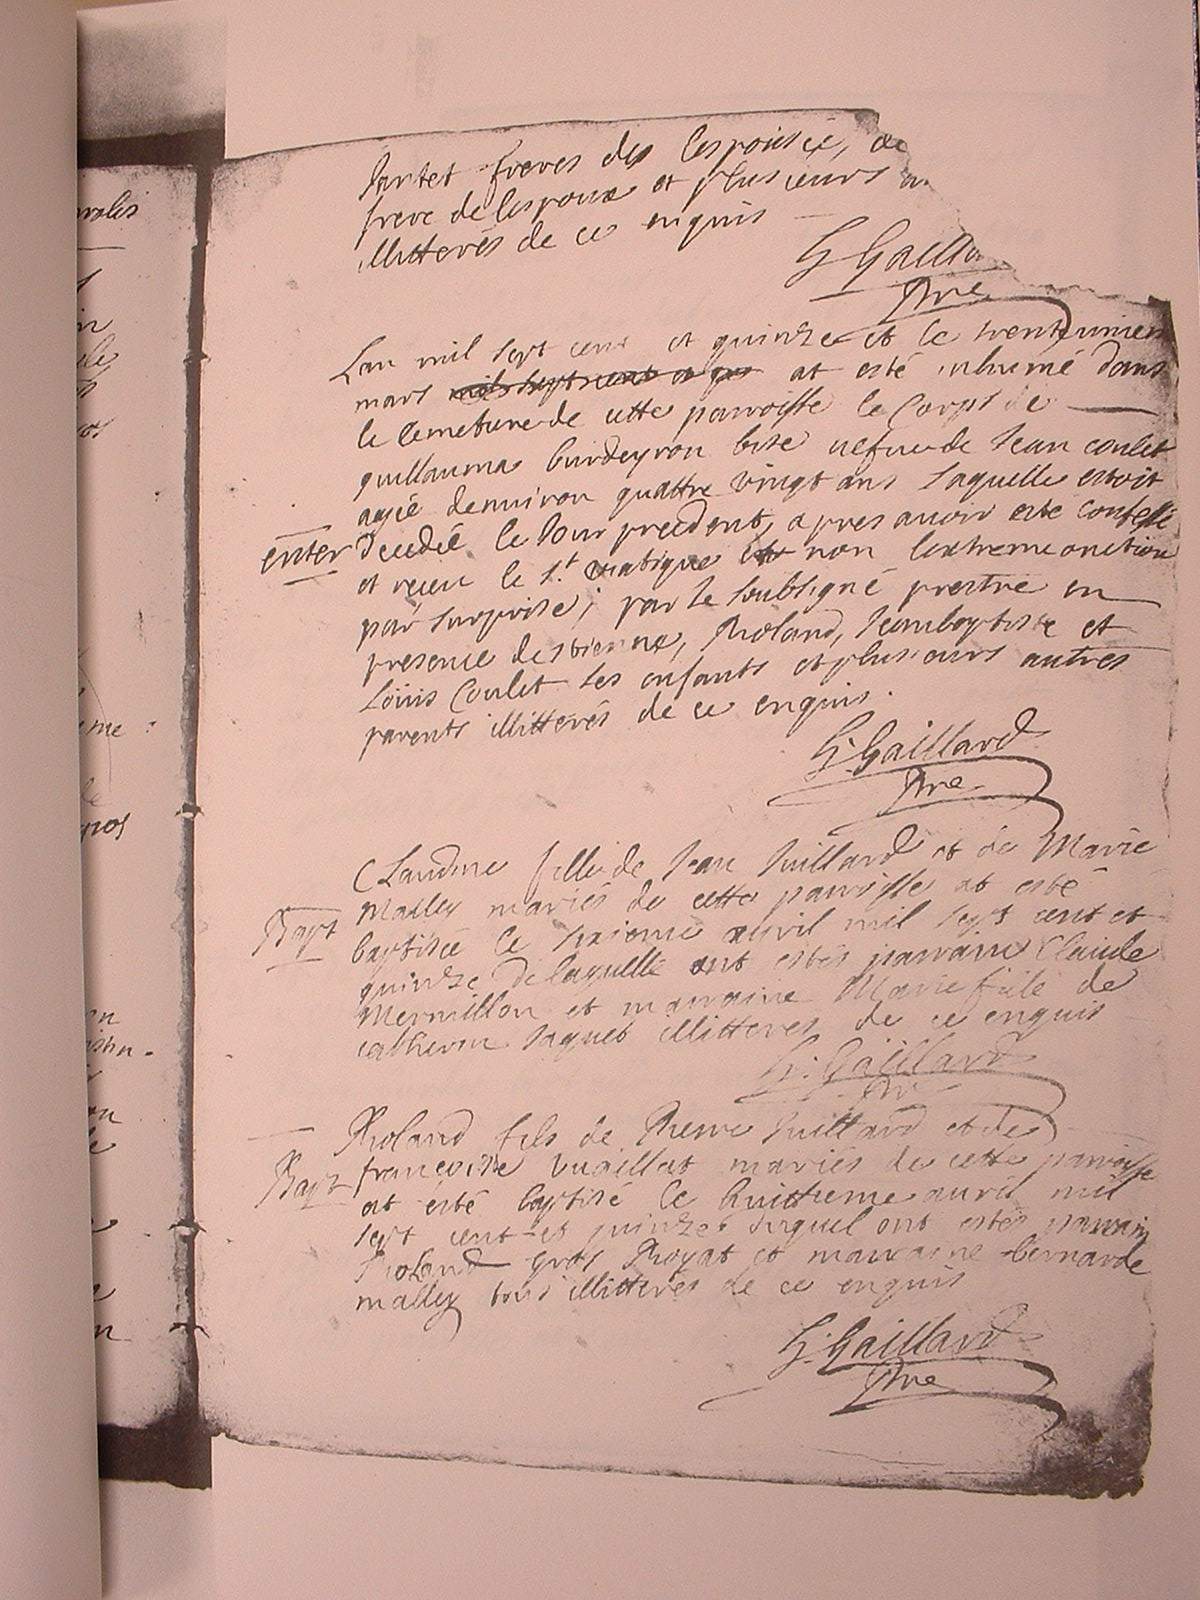 freres de lespousée, de
frere de lespoux et plusieurs
illitterés de ce enquis
G Gailla
Pbre
Lan mil sept cent et quinze et le trente unieme
mars at esté inhumé dans
le cemetiere de cette parroisse le Corps de
guillauma burdeyron vefue de Jean coulet
agée denuiron quattre vingt ans laquelle estoit
enter decedée le Jour precedent, apres auoir esté confessé
et receu le St. viatique non lextreme onction
par surprise; par le soubsigné prestre en
presence destienne, Roland, Jeanbaptiste et
Loüis Coulet ses enfants et plusieurs autres
parents illitterés de ce enquis.
G. Gaillard
Pbre
Claudine fille de Jean Juillard et de Marie
Malley mariés de cette parroisse at esté
Bapt
baptisée le sixieme auril mil sept cent et
quinze de laquelle ont estés parrain Claude
Mermillon et marraine Marie fille de
catherin Jaquet illitteres de ce enquis
G. Gaillard
Pbre
Roland fils de Pierre Juillard et de
Bapt francoise Vuaillat mariés de cette parroisse
at esté baptisé le huittieme auril mil
sept cent et quinze duquel ont estés parrain
Roland gros Royat et marraine bernarde
malley tous illitterés de ce enquis
G. Gaillard
Pbre